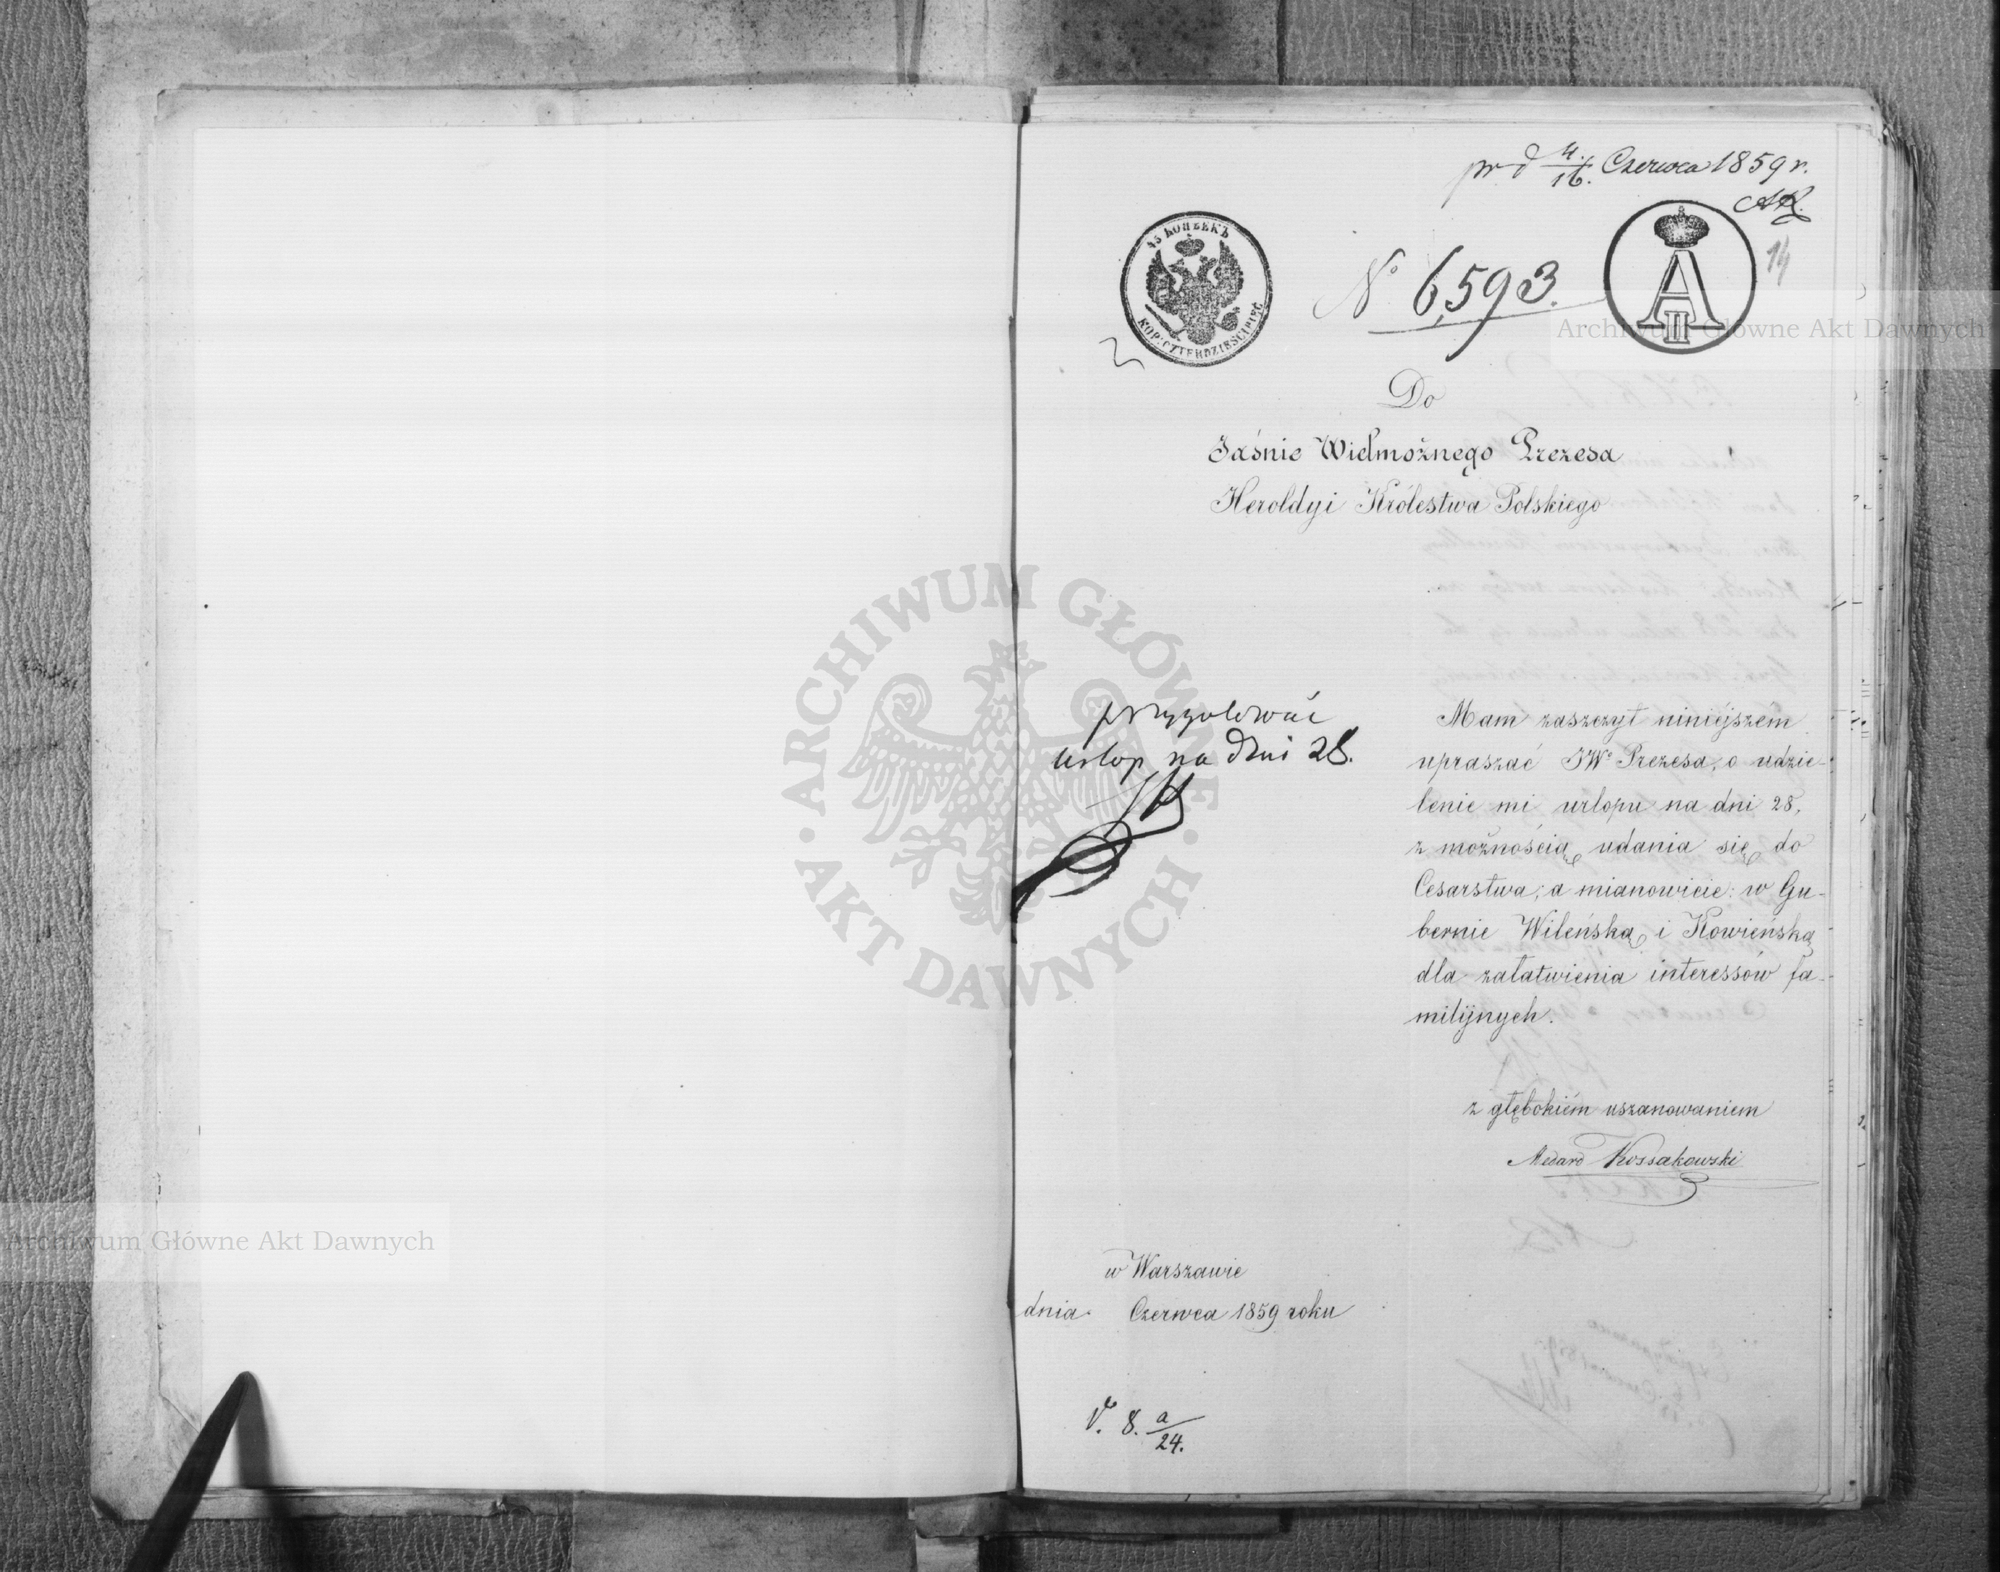 pr d 4./16. Czerwca 1859 r.
14
45 КОПѢЕКЪ
KOP: CZTERDZIEŚCI PIĘĆ
№ 6,593.
A II
Do
Jaśnie Wielmożnego Prezesa
Heroldyi Królestwa Polskiego
przygotować
urlop na dni 28.
Mam zaszczyt niniejszem
upraszać JWo Prezesa, o udzie-
lenie mi urlopu na dni 28,
z możnością udania się do
Cesarstwa, a mianowicie: w Gu-
bernie Wileńską i Kowieńską
dla załatwienia interessów fa-
milijnych.
z głębokiém uszanowaniem
Medard Kossakowski
w Warszawie
dnia Czerwca 1859 roku
V. 8. a/24.
Archiwum Główne Akt Dawnych
ARCHIWUM GŁÓWNE
· AKT DAWNYCH ·
Archiwum Główne Akt Dawnych